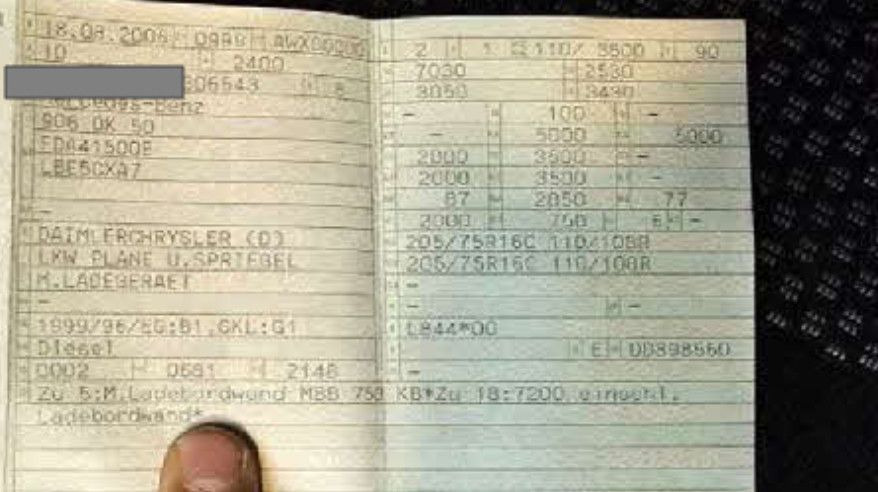 18.09.2006 0999 AWX00000
10 2400
06543 8
Mercedes-Benz
906 OK 50
FDA41500B
LBE5CXA7
-
DAIMLERCHRYSLER (D)
LKW PLANE U.SPRIEGEL
M.LADEGERAET
-
1999/96/EG;B1,GKL:G1
Diesel
0002 0681 2148
2 1 110/ 3800 90
7030 2530
3050 3430
- 100 -
- 5000 5000
2000 3500 -
2000 3500 -
87 2050 77
2000 750 6 -
205/75R16C 110/108R
205/75R16C 110/108R
-
- -
L844*00
E DD898560
-
Zu 5:M.Ladebordwand MBB 750 KB*Zu 18:7200 einschl.
Ladebordwand*